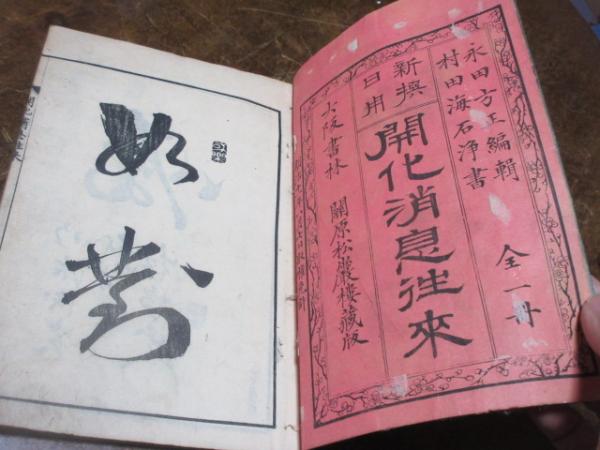 永田方正編輯
村田海石浄書
全一冊
新撰
日用
開化消息往來
大阪書林
關原松巖樓藏版
如
對